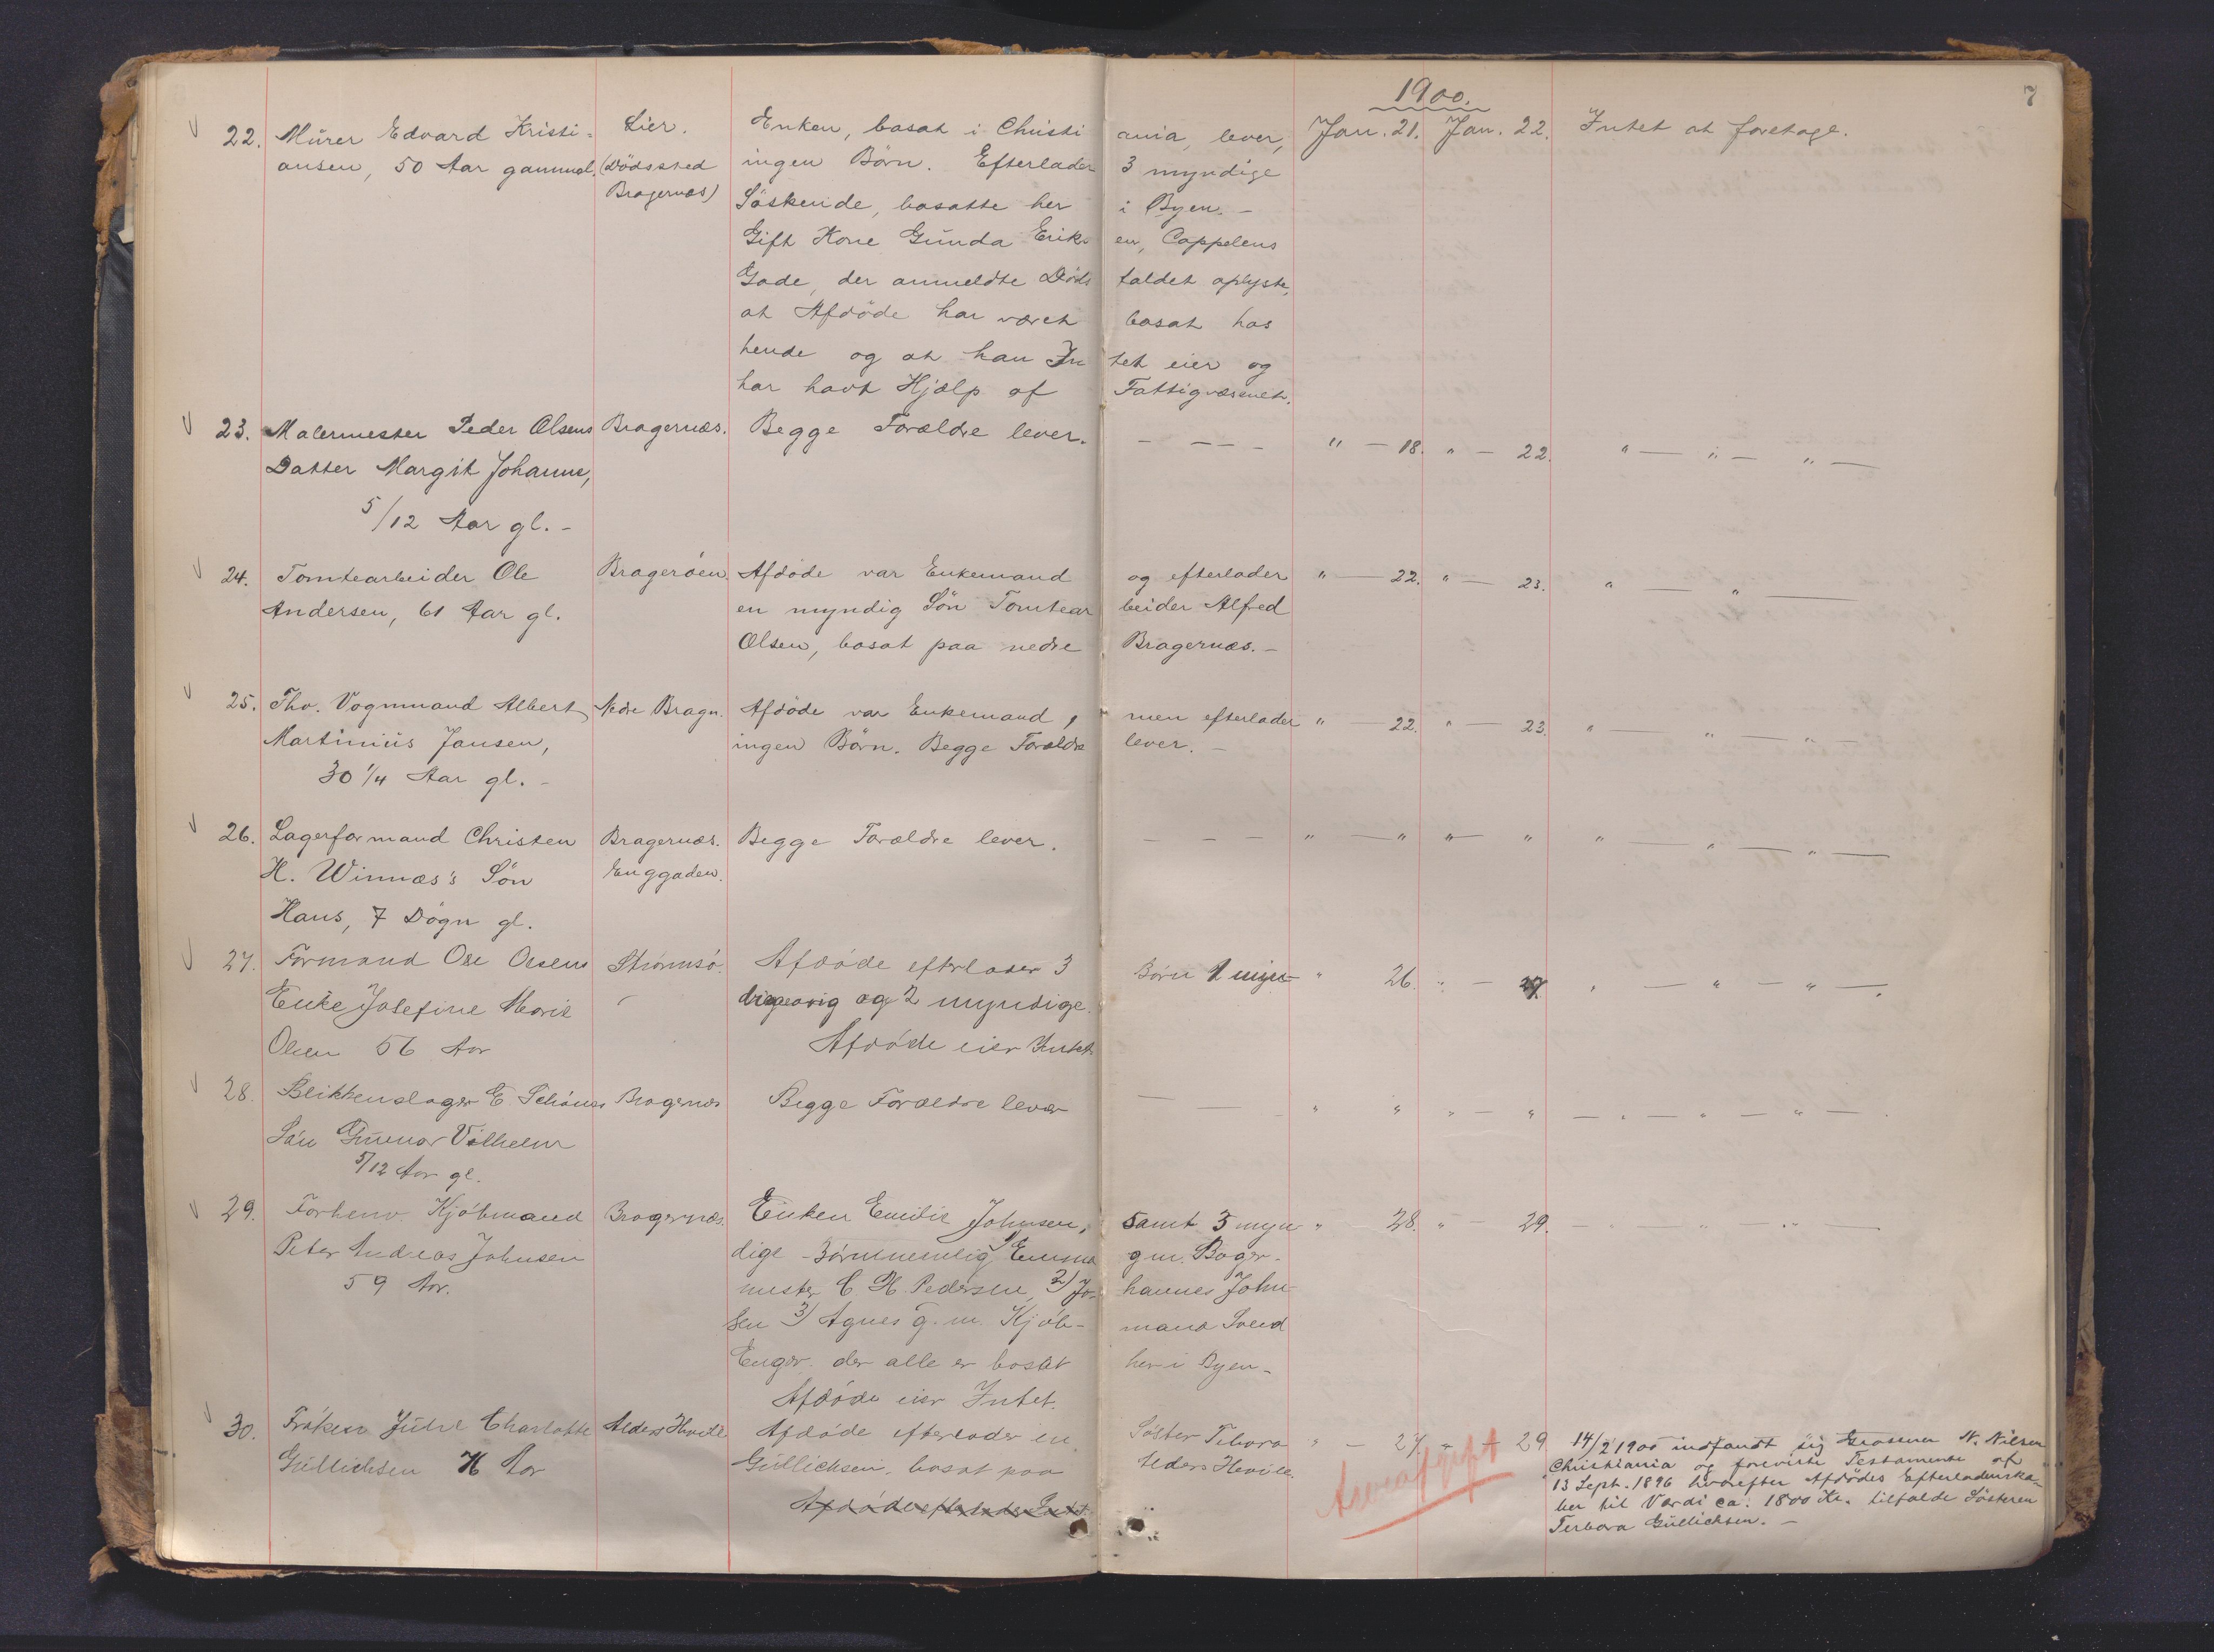 1900.
7
22. Mürer Edvard Kristi= Lier. Enken, bosat i Christi ania, lever, Jan. 21. Jan. 22. Intet at foretage.
ansen, 50 Aar gammel. (Dödssted ingen Börn. Efterlader 3 myndige
Bragernæs) Söskende, bosatte her i Byen. –
Gift Kone Gunda Eriks en, Cappelens
Gade, der anmeldte Döds faldet oplyste,
at Afdöde har været bosat hos
hende og at han In tet eier og
har havt Hjælp af Fattigvæsenet.
23. Malermester Peder Olsens Bragernæs. Begge Forældre lever. – – – " – 18. " – 22. " – " – " –
Datter Margit Johanne,
5/12 Aar gl. –
24. Tomtearbeider Ole Bragerøen Afdöde var Enkemand og efterlader " – 22. " – 23. " – " –
Andersen, 61 Aar gl. en myndig Sön Tomtear beider Alfred
Olsen, bosat paa nedre Bragernæs. –
25. Fhv. Vognmand Albert Nedre Bragn. Afdöde var Enkemand, men efterlader " – 22. " – 23. " – " – " –
Martinius Jansen, ingen Börn. Begge Forældre lever. –
30 1/4 Aar gl. –
26. Lagerformand Christen Bragernæs. Begge Forældre lever. – – – " – " " – " " – " – " –
H. Winnæs's Sön Enggaden.
Hans, 7 Dögn gl.
27. Formand Ole Olsens Strömsö. Afdöde efterlader 3 Börn 1 myn- " 26. " – 27. " – " – " –
Enke Josefine Marie og 2 myndige.
Olsen 56 Aar Afdöde eier Intet
28. Blikkenslager E. Bragernæs Begge Forældre lever – – – " " " – " – " – " – " –
Sön Gunnar Vilhelm
5/12 Aar gl.
29. Forhenv. Kjöbmand Bragernæs. Enken Emilie Johnsen, samt 3 myn " 28. " – 29. – " – " –
Peter Andreas Johnsen dige Börn nemlig 1) Emma g.m. Bager-
59 Aar. mester C. H. Pedersen, 2) Jo- hannes John-
sen 3) Agnes g. m. Kjöb- mand Svend
Enger. der alle er bosat her i Byen –
Afdöde eier Intet.
30. Fröken Julie Charlotte Alders Hvile Afdöde efterlader en Söster Tebora " – 27. " – 29 14/2 1900 indfandt sig N. Nilsen
Güllichsen Aar Güllichsen, bosat paa Alders Hvile. Christiania og foreviste Testamente af
Afdöde efterlader Intet Arveafgift 13 Sept. 1896 hvorefter Afdödes Efterladenska-
ber til Værdi ca. 1800 Kr. tilfalde Sösteren
Terbora Güllichsen. –